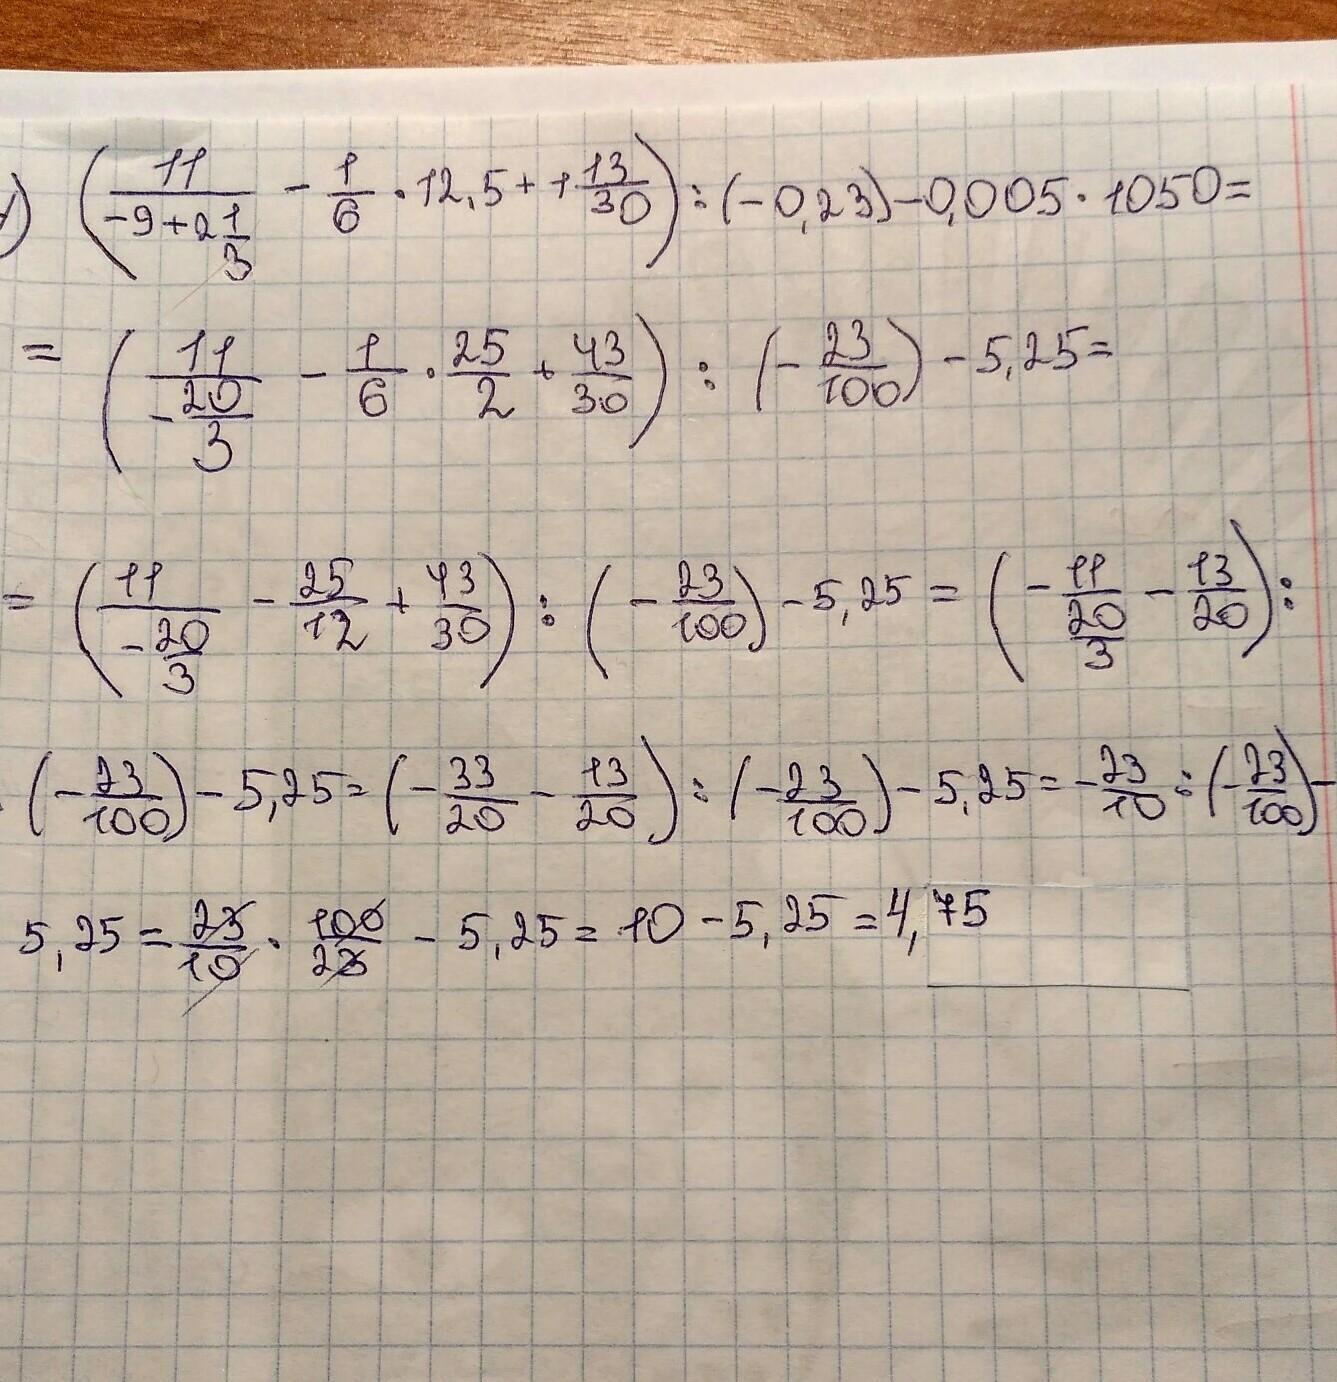 (11/(-9+2 1/3) - 1/6 · 12,5 + 1 13/30) : (-0,23) - 0,005 · 1050 =
= (11/(-20/3) - 1/6 · 25/2 + 43/30) : (- 23/100) - 5,25 =
= (11/(-20/3) - 25/12 + 43/30) : (- 23/100) - 5,25 = (- 11/(20/3) - 13/20) :
(- 23/100) - 5,25 = (- 33/20 - 13/20) : (- 23/100) - 5,25 = - 23/10 : (- 23/100) -
5,25 = 23/10 · 100/23 - 5,25 = 10 - 5,25 = 4,75